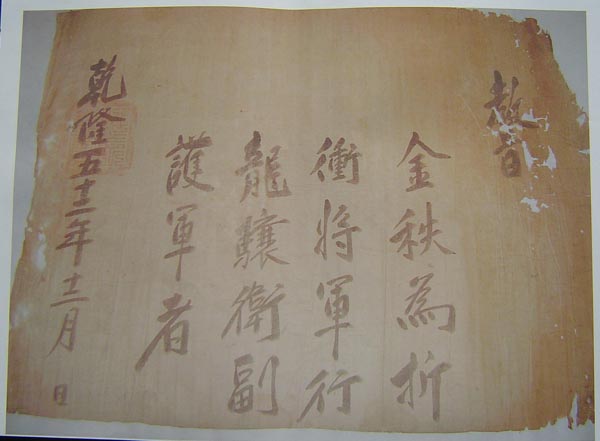 教旨
金秩為折
衝將軍行
龍驤衛副
護軍者
乾隆五十二年十二月 日